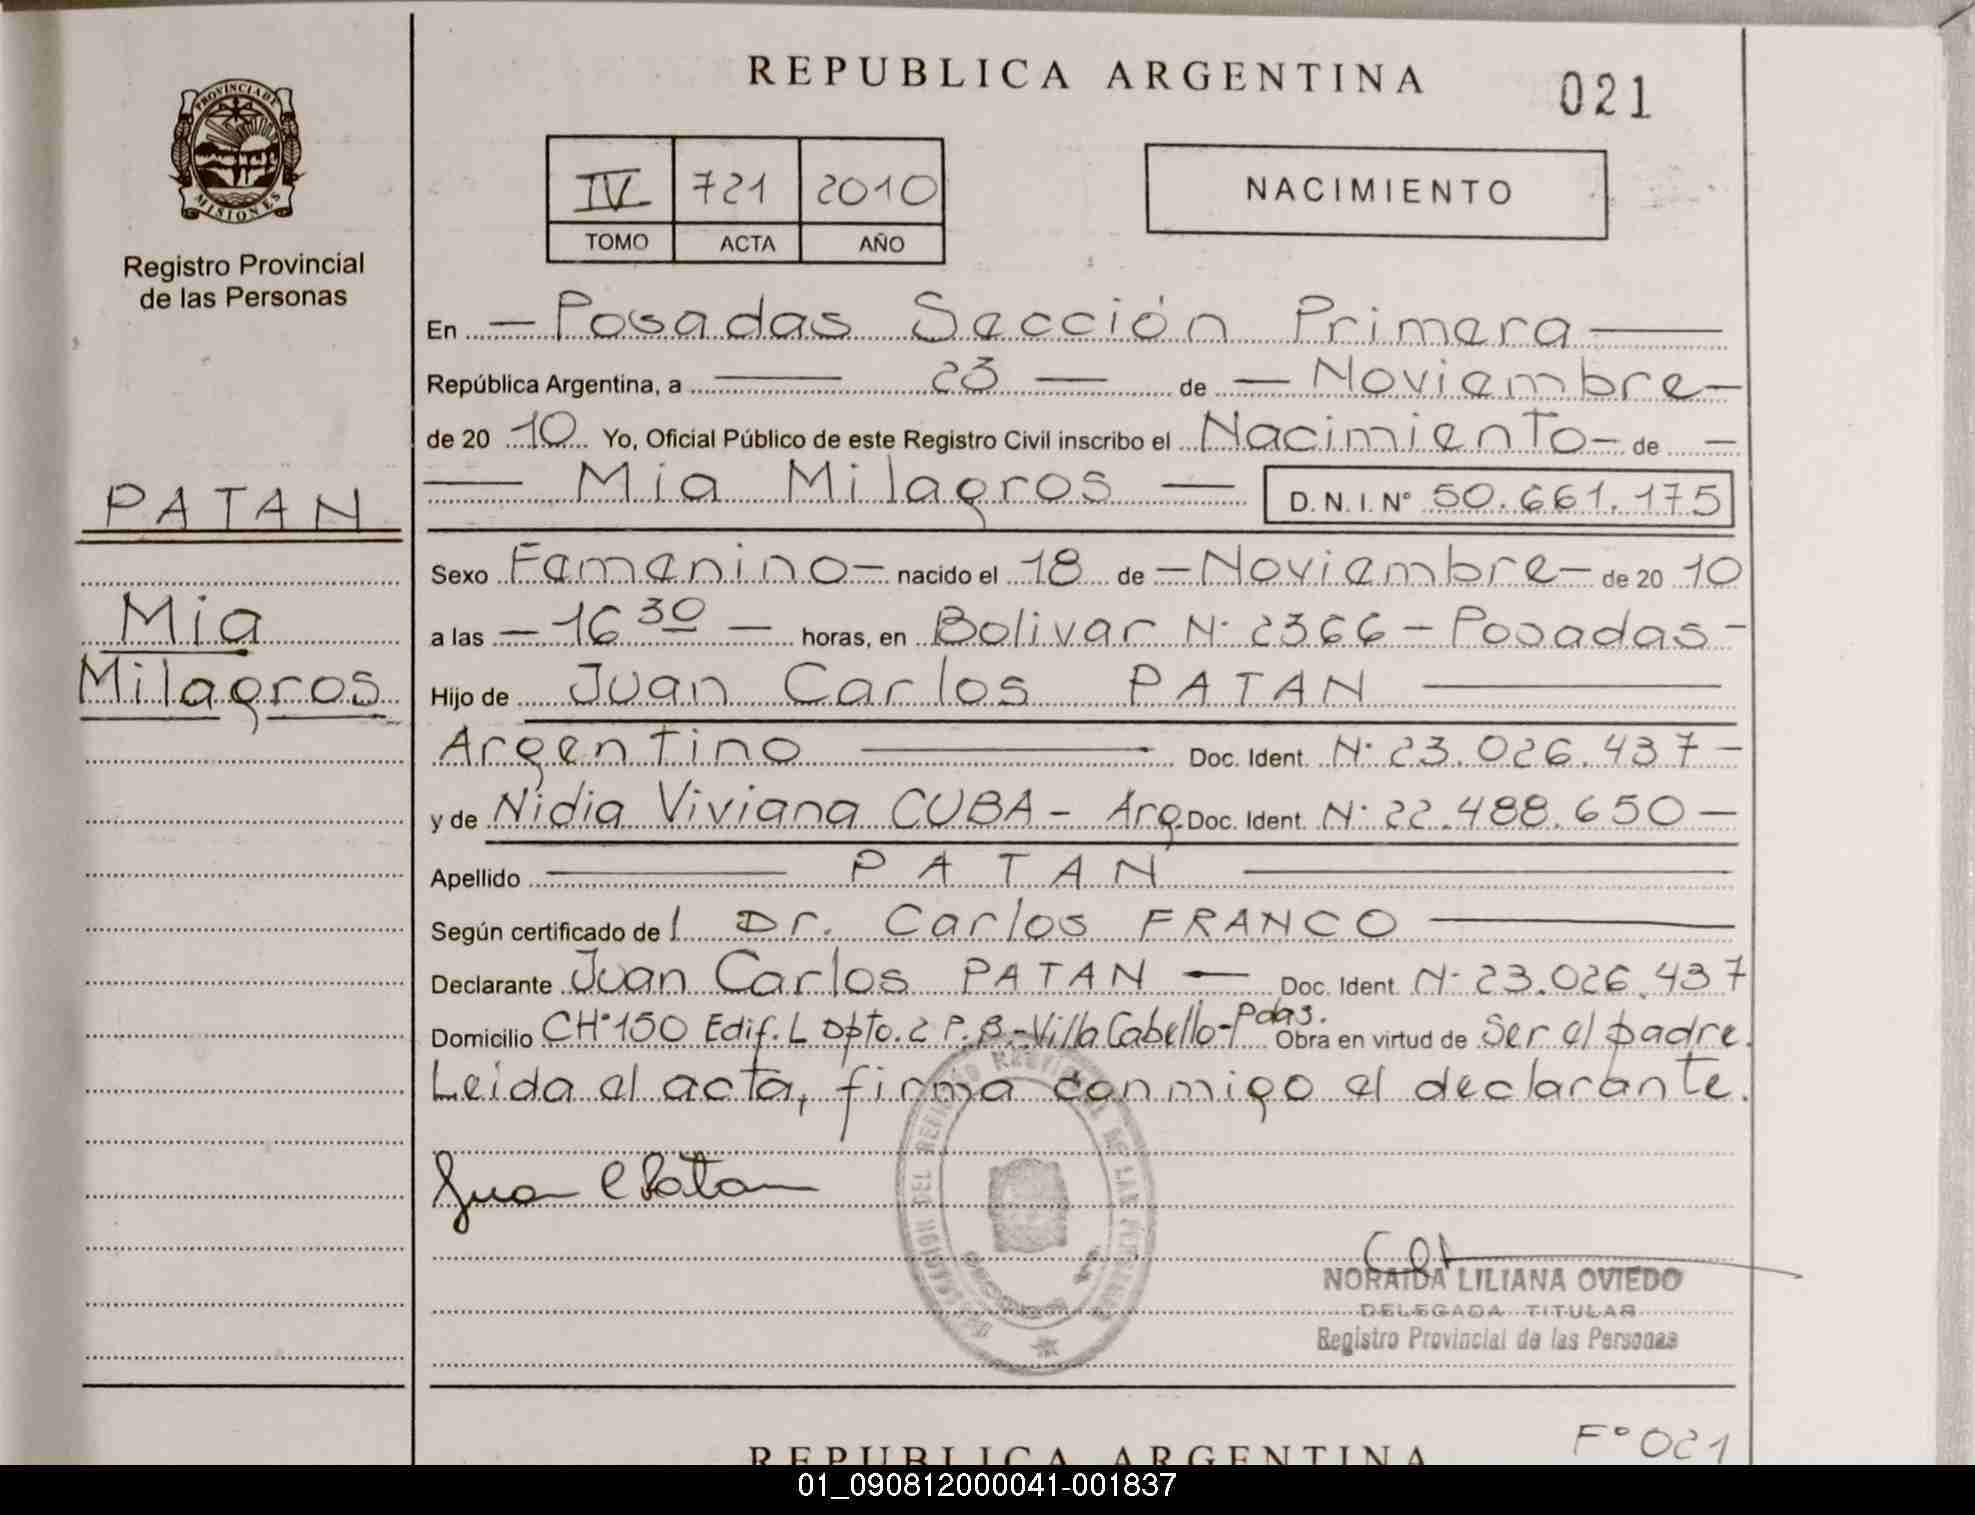 REPUBLICA ARGENTINA
021
PROVINCIA DE
MISIONES
Registro Provincial
de las Personas
IV 721 2010
TOMO ACTA AÑO
NACIMIENTO
En — Posadas Sección Primera —
República Argentina, a — 23 — de — Noviembre —
de 20 10 Yo, Oficial Público de este Registro Civil inscribo el Nacimiento — de —
— Mia Milagros — D. N. I. N° 50.661.175
PATAN
Mia
Milagros
Sexo Femenino — nacido el 18 de — Noviembre — de 20 10
a las — 16 30 — horas, en Bolivar N° 2366 — Posadas —
Hijo de Juan Carlos PATAN —
Argentino — Doc. Ident. N° 23.026.437 —
y de Nidia Viviana CUBA — Arg. Doc. Ident. N° 22.488.650 —
Apellido — PATAN —
Según certificado de l Dr. Carlos FRANCO —
Declarante Juan Carlos PATAN — Doc. Ident. N° 23.026.437
Domicilio CH°150 Edif. L Dpto. 2 P.B.-Villa Cabello-Pdas. Obra en virtud de ser el padre.
Leida el acta, firma conmigo el declarante.
Juan C Patan
NORAIDA LILIANA OVIEDO
DELEGADA TITULAR
Registro Provincial de las Personas
F° 021
REPUBLICA ARGENTINA
01_090812000041-001837